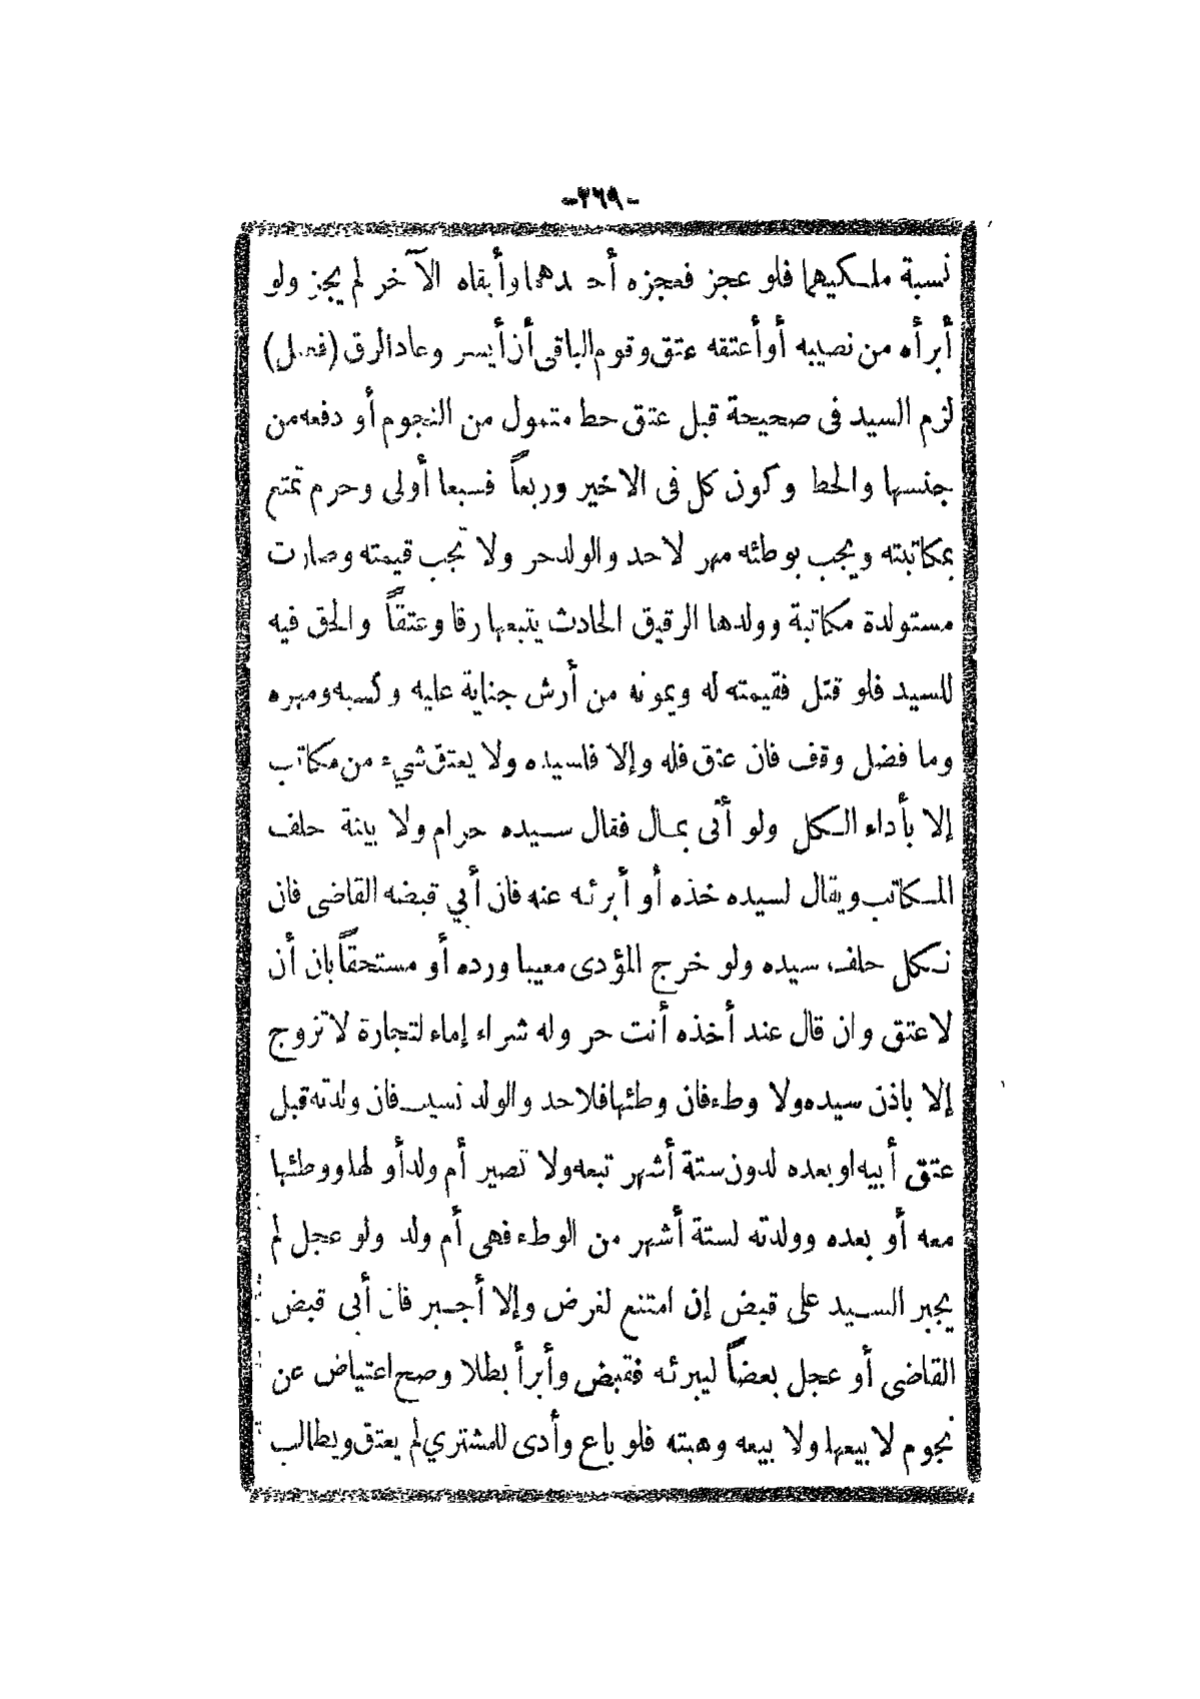 -٢٦٩-
نسبة ملكيهما فلو عجز فعجزه أحدهما وأبقاه الآخر لم يجز ولو
أبرأه من نصيبه أو أعتقه عتق وقوم الباقى أن أيسر وعاد الرق (فصل)
لزم السيد فى صحيحة قبل عتق حط متمول من النجوم أو دفعه من
جنسها والحط وكون كل فى الاخير وربعاً فسبعا أولى وحرم تمتع
بمكاتبته ويجب بوطئه مهر لا حد والولد حر ولا تجب قيمته وصارت
مستولدة مكاتبة وولدها الرقيق الحادث يتبعها رقا وعتقاً والحق فيه
للسيد فلو قتل فقيمته له ويمونه من أرش جناية عليه وكسبه ومهره
وما فضل وقف فان عتق فله وإلا فلسيده ولا يعتق شيء من مكاتب
إلا بأداء الكل ولو أتى بمال فقال سيده حرام ولا بينة حلف
المكاتب ويقال لسيده خذه أو أبرئه عنه فان أبي قبضه القاضى فان
نكل حلف سيده ولو خرج المؤدى معيبا ورده أو مستحقاً بان أن
لا عتق وان قال عند أخذه أنت حر وله شراء إماء لتجارة لا تزوج
إلا باذن سيده ولا وطء فان وطئها فلا حد والولد نسيب فان ولدته قبل
عتق أبيه او بعده لدون ستة أشهر تبعه ولا تصير أم ولد أو لها ووطئها
معه أو بعده وولدته لستة أشهر من الوطء فهى أم ولد ولو عجل لم
يجبر السيد على قبض إن امتنع لغرض وإلا أجبر فان أبى قبض
القاضى أو عجل بعضاً ليبرئه فقبض وأبرأ بطلا وصح اعتياض عن
نجوم لا بيعها ولا بيعه وهبته فلو باع وأدى للمشتري لم يعتق ويطالب